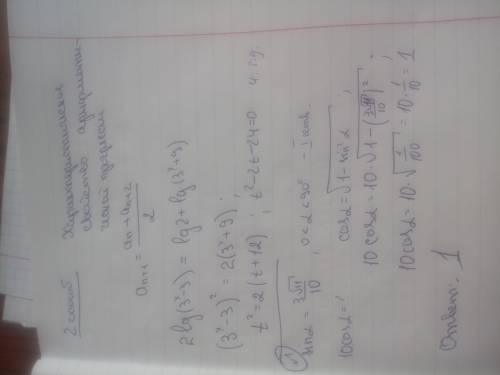 2 способ
Характеристическое
свойство арифмети-
ческой прогрессии
an+1 = an + an+2 / 2
2lg(3ˣ-3) = lg2 + lg(3ˣ+9)
(3ˣ-3)² = 2(3ˣ+9) ;
t² = 2(t+12) ; t²-2t-24=0 и т.д.
√1
sinα = 3√11/10 , 0<α<90° - I четв.
10cosα = ? cosα = √1-sin²α ;
10cosα = 10·√1-(3√11/10)² ;
10cosα = 10·√1/100 = 10·1/10 = 1
Ответ: 1